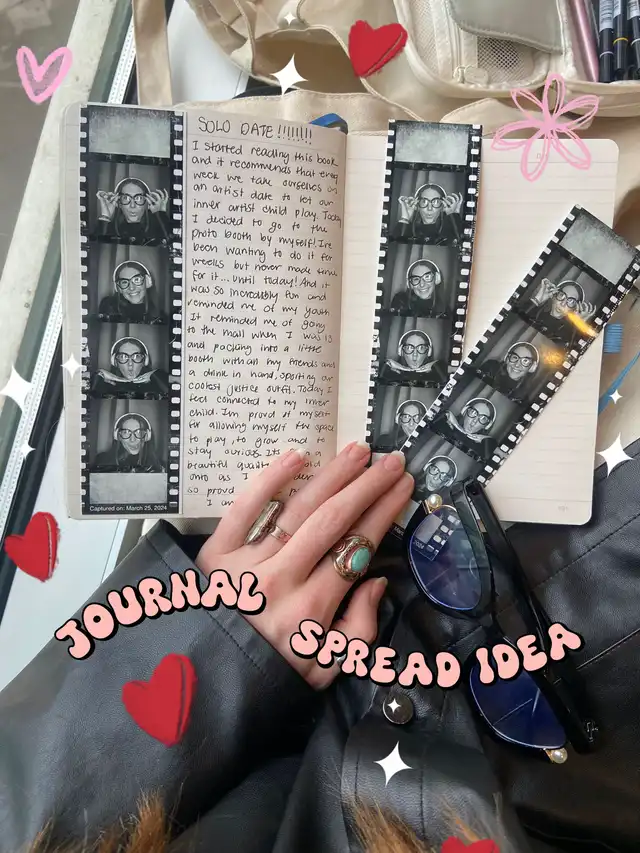 SOLO DATE!!!!!!!!
I started reading this book
and it recommends that every
week we take ourselves on
an artist date to let our
inner artist child play. Today
I decided to go to the
photo booth by myself! I've
been wanting to do it for
weeks but never made time
for it... until today! And it
was so incredibly fun and
reminded me of my youth
It reminded me of going
to the mall when I was 13
and packing into a little
booth with all my friends and
a drink in hand, sporting our
coolest justice outfit. Today I
feel connected to my inner
child. I'm proud of myself
for allowing myself the space
to play, to grow and to
stay curious. Its a
beautiful
onto as I
so proud
I am
Captured on: March 25, 2024
JOURNAL
SPREAD IDEA